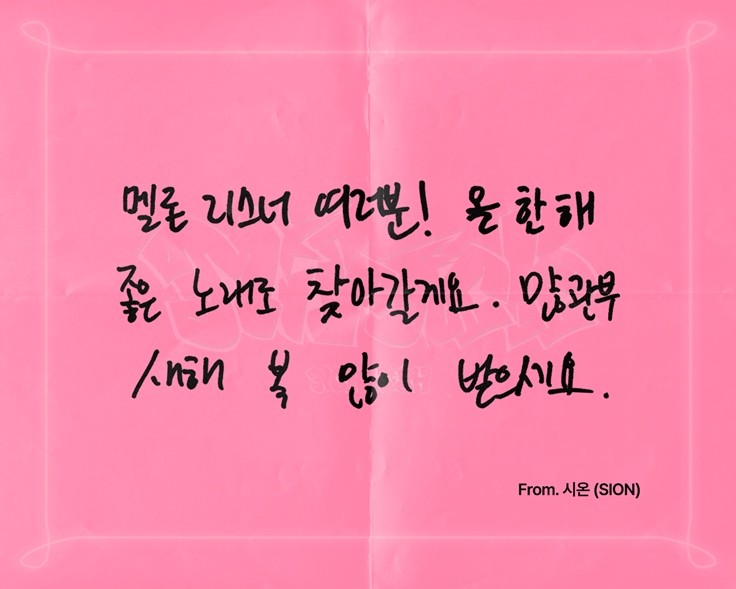 멜론 리스너 여러분! 올 한 해
좋은 노래로 찾아갈게요. 많관부
새해 복 많이 받으세요.
From. 시온 (SION)